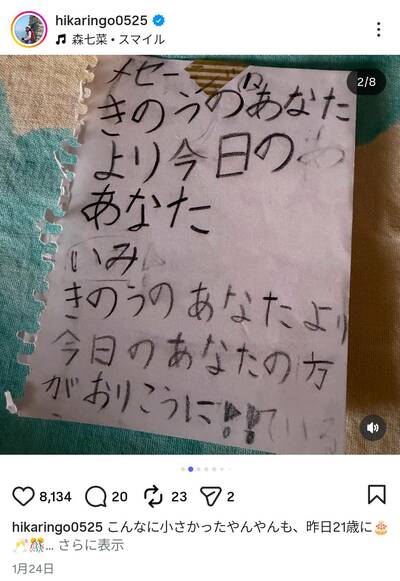 hikaringo0525
森七菜・スマイル
2/8
メセー
きのうのあなた
より今日の
あなた
いみ
きのうのあなたより
今日のあなたの方
がおりこうに!!ている
8,134
20
23
2
hikaringo0525 こんなに小さかったやんやんも、昨日21歳に🎂
🥂🎊... さらに表示
1月24日